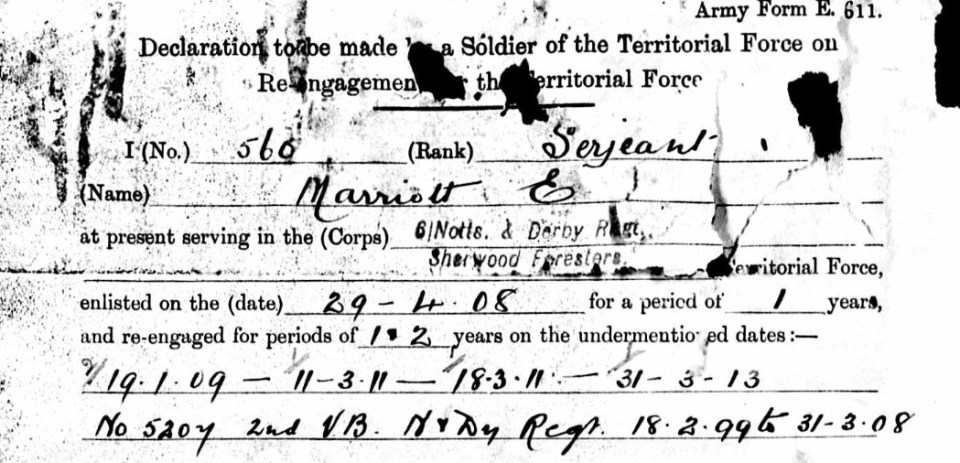 Army Form E. 611.
Declaration to be made a Soldier of the Territorial Force on
Re-engagement the Territorial Force
I (No.) 560 (Rank) Serjeant
(Name) Marriott E
at present serving in the (Corps) 6/Notts. & Derby Regt.
Sherwood Foresters. Territorial Force,
enlisted on the (date) 29-4.08 for a period of 1 years,
and re-engaged for periods of 1 & 2 years on the undermentioned dates:—
19.1.09 — 11-3.11 — 18.3.11. — 31-3-13
No 5207 2nd V.B. N & Dy Regt. 18.2.99 to 31-3-08